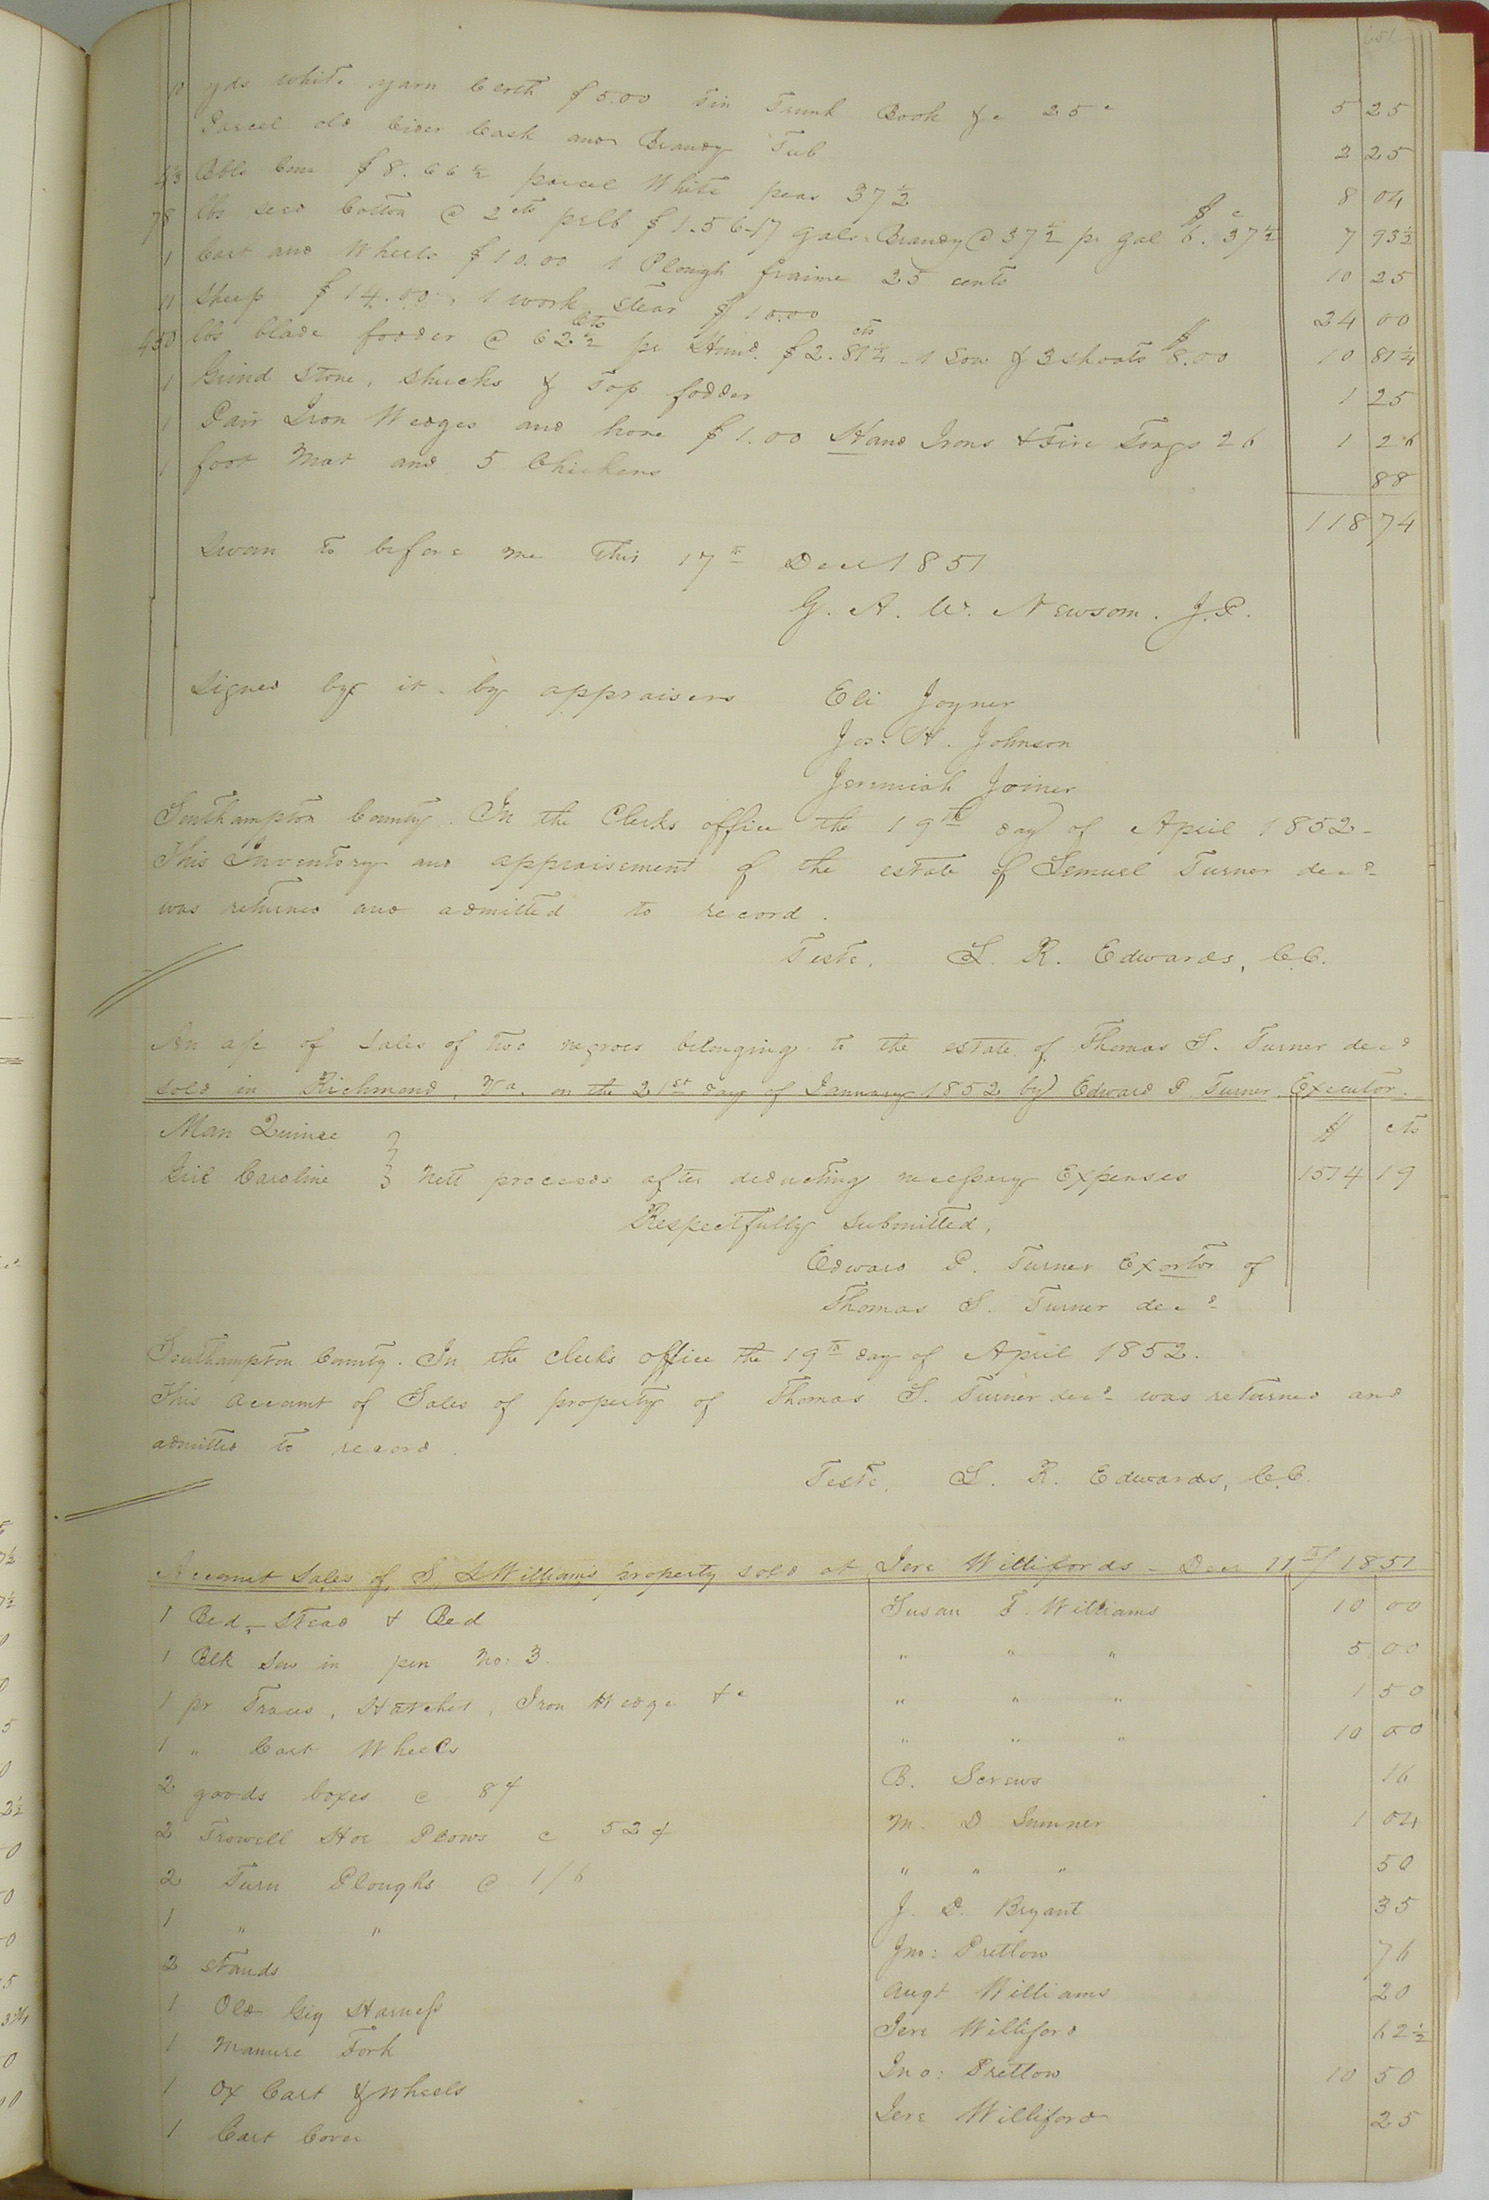 651
10 yds white yarn Cloth $5.00 Tin Trunk Book &c 25c 5 25
Parcel old Cider Cask and Brandy Tub 2 25
4⅓ Bbls Corn $8.66½ parcel White peas 37½ 8 04
78 lbs seed Cotton @ 2 cts pr lb $1.56 - 17 gals Brandy @ 37½ pr gal $6.37½ 7 93½
1 Cart and Wheels $10.00 1 Plough fraime 25 cents 10 25
11 Sheep $14.00, 1 work Stear $10.00 24 00
450 lbs blade fodder @ 62½ cts pr Hund. $2.81¼ cts - 1 Sow & 3 shoats $8.00 10 81¼
1 Grind Stone, Shucks & Top fodder 1 25
1 Pair Iron Wedges and hone $1.00 Hand Irons & Fire Tongs 26 1 26
1 foot Mat and 5 Chickens 88
118 74
Sworn to before me this 17th Decr 1851
G. A. W. Newsom. J.P.
Signed by it. by appraisers Eli Joyner
Jos: H. Johnson
Jeremiah Joiner
Southampton County. In the Clerks office the 19th day of April 1852 -
This Inventory and appraisement of the estate of Lemuel Turner decd
was returned and admitted to record.
Teste, L. R. Edwards, C.C.
An a/c of Sales of two negroes belonging to the estate of Thomas S. Turner decd
sold in Richmond, Va. on the 21st day of January 1852 by Edward P. Turner Executor.
Man Quincee } $ cts
Girl Caroline } Nett proceeds after deducting necessary Expenses 1574 19
Respectfully submitted,
Edward P. Turner Exortor of
Thomas S. Turner decd
Southampton County. In the clerks office the 19th day of April 1852.
This account of Sales of property of Thomas S. Turner decd was returned and
admitted to record.
Teste, L. R. Edwards, C.C.
Account Sales of S. L Williams property sold at Jere Willifords - Decr 11th/1851
1 Bed-Stead & Bed Susan F. Williams 10 00
1 Blk Sow in pen No: 3. " " " 5 00
1 pr Traces, Hatchet, Iron Wedge &c " " " 1 50
1 " Cart Wheels " " " 10 00
2 goods boxes @ 8¢ B. Screws 16
2 Trowell Hoe Plows @ 52¢ M. D Sumner 1 04
2 Turn Ploughs @ 1/6 " " " 50
1 " " J. D. Bryant 35
2 Stands Jno: Pretlow 76
1 Old Gig Harness Augt Williams 20
1 Manure Fork Jere Williford 62½
1 Ox Cart & Wheels Jno: Pretlow 10 50
1 Cart Cover Jere Williford 25